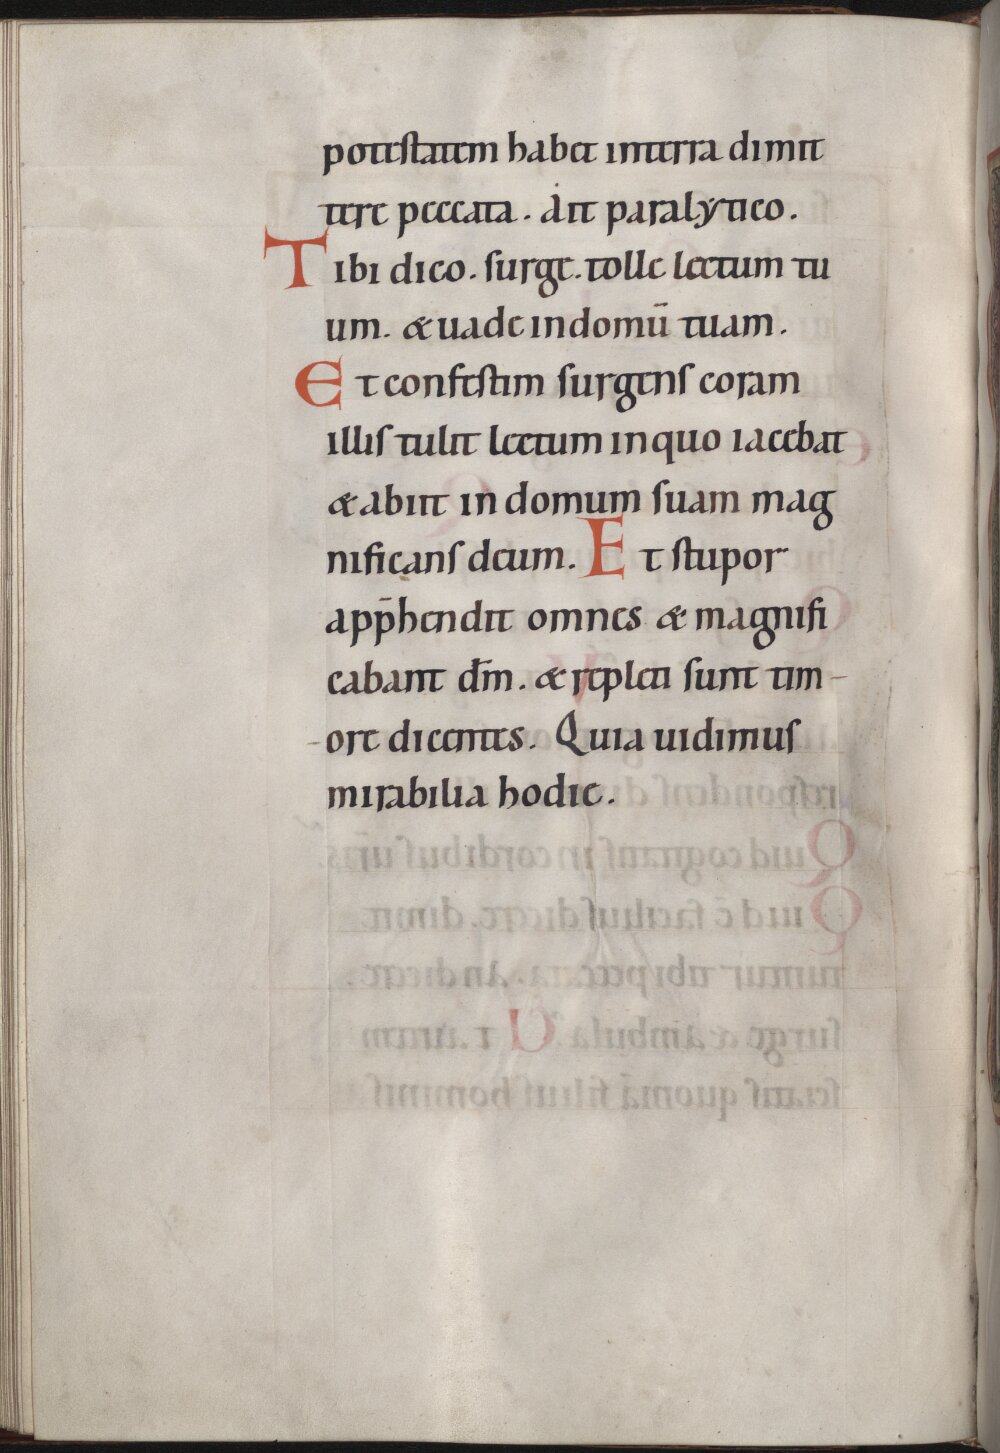 potestatem habet interra dimit
tere peccata. Ait paralytico.
Tibi dico. surge. tolle lectum tu
um. & uade indomū tuam.
Et confestim surgens coram
illis tulit lectum inquo iacebat
& abiit in domum suam mag
nificans deum. Et stupor
app̄hendit omnes & magnifi
cabant dm̄. & repleti sunt tim-
-ore dicentes. Quia uidimus
mirabilia hodie.